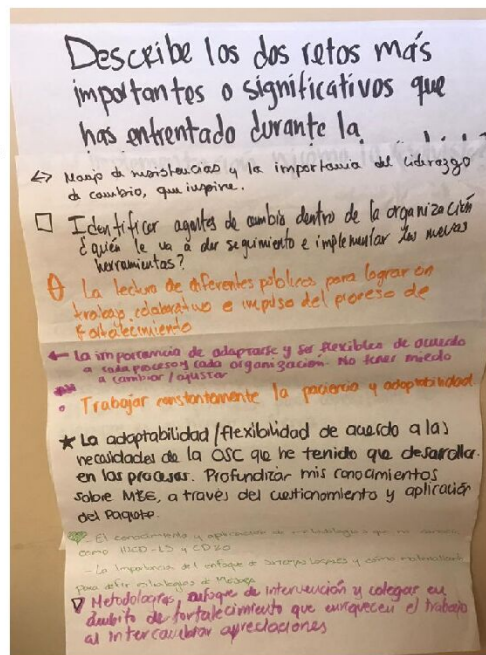 Describe los dos retos más
importantes o significativos que
has enfrentado durante la
Manejo de resistencias y la importancia del liderazgo
de cambio, que inspire.
Identificar agentes de cambio dentro de la organización
¿quién le va a dar seguimiento e implementar las nuevas
herramientas?
La lectura de diferentes públicos para lograr un
trabajo colaborativo e impulso del proceso de
fortalecimiento
← La importancia de adaptarse y ser flexibles de acuerdo
a cada proceso y cada organización. No tener miedo
a cambiar/ajustar
• Trabajar constantemente la paciencia y adaptabilidad
★ La adaptabilidad/flexibilidad de acuerdo a las
necesidades de la OSC que he tenido que desarrollar
en los procesos. Profundizar mis conocimientos
sobre M&E, a través del cuestionamiento y aplicación
del Paquete.
- El conocimiento y aplicación de metodologías que no
como
- La importancia del enfoque de sistemas locales y cómo
para definir estrategias de
Metodologías, enfoque de intervención y colegas en
ámbito de fortalecimiento que enriquecen el trabajo
al intercambiar apreciaciones